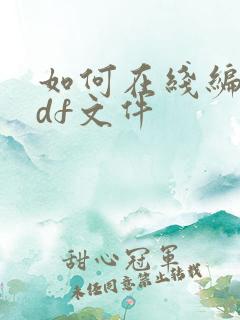 如何在线编
df文件
甜心冠军
未经同意禁止转载